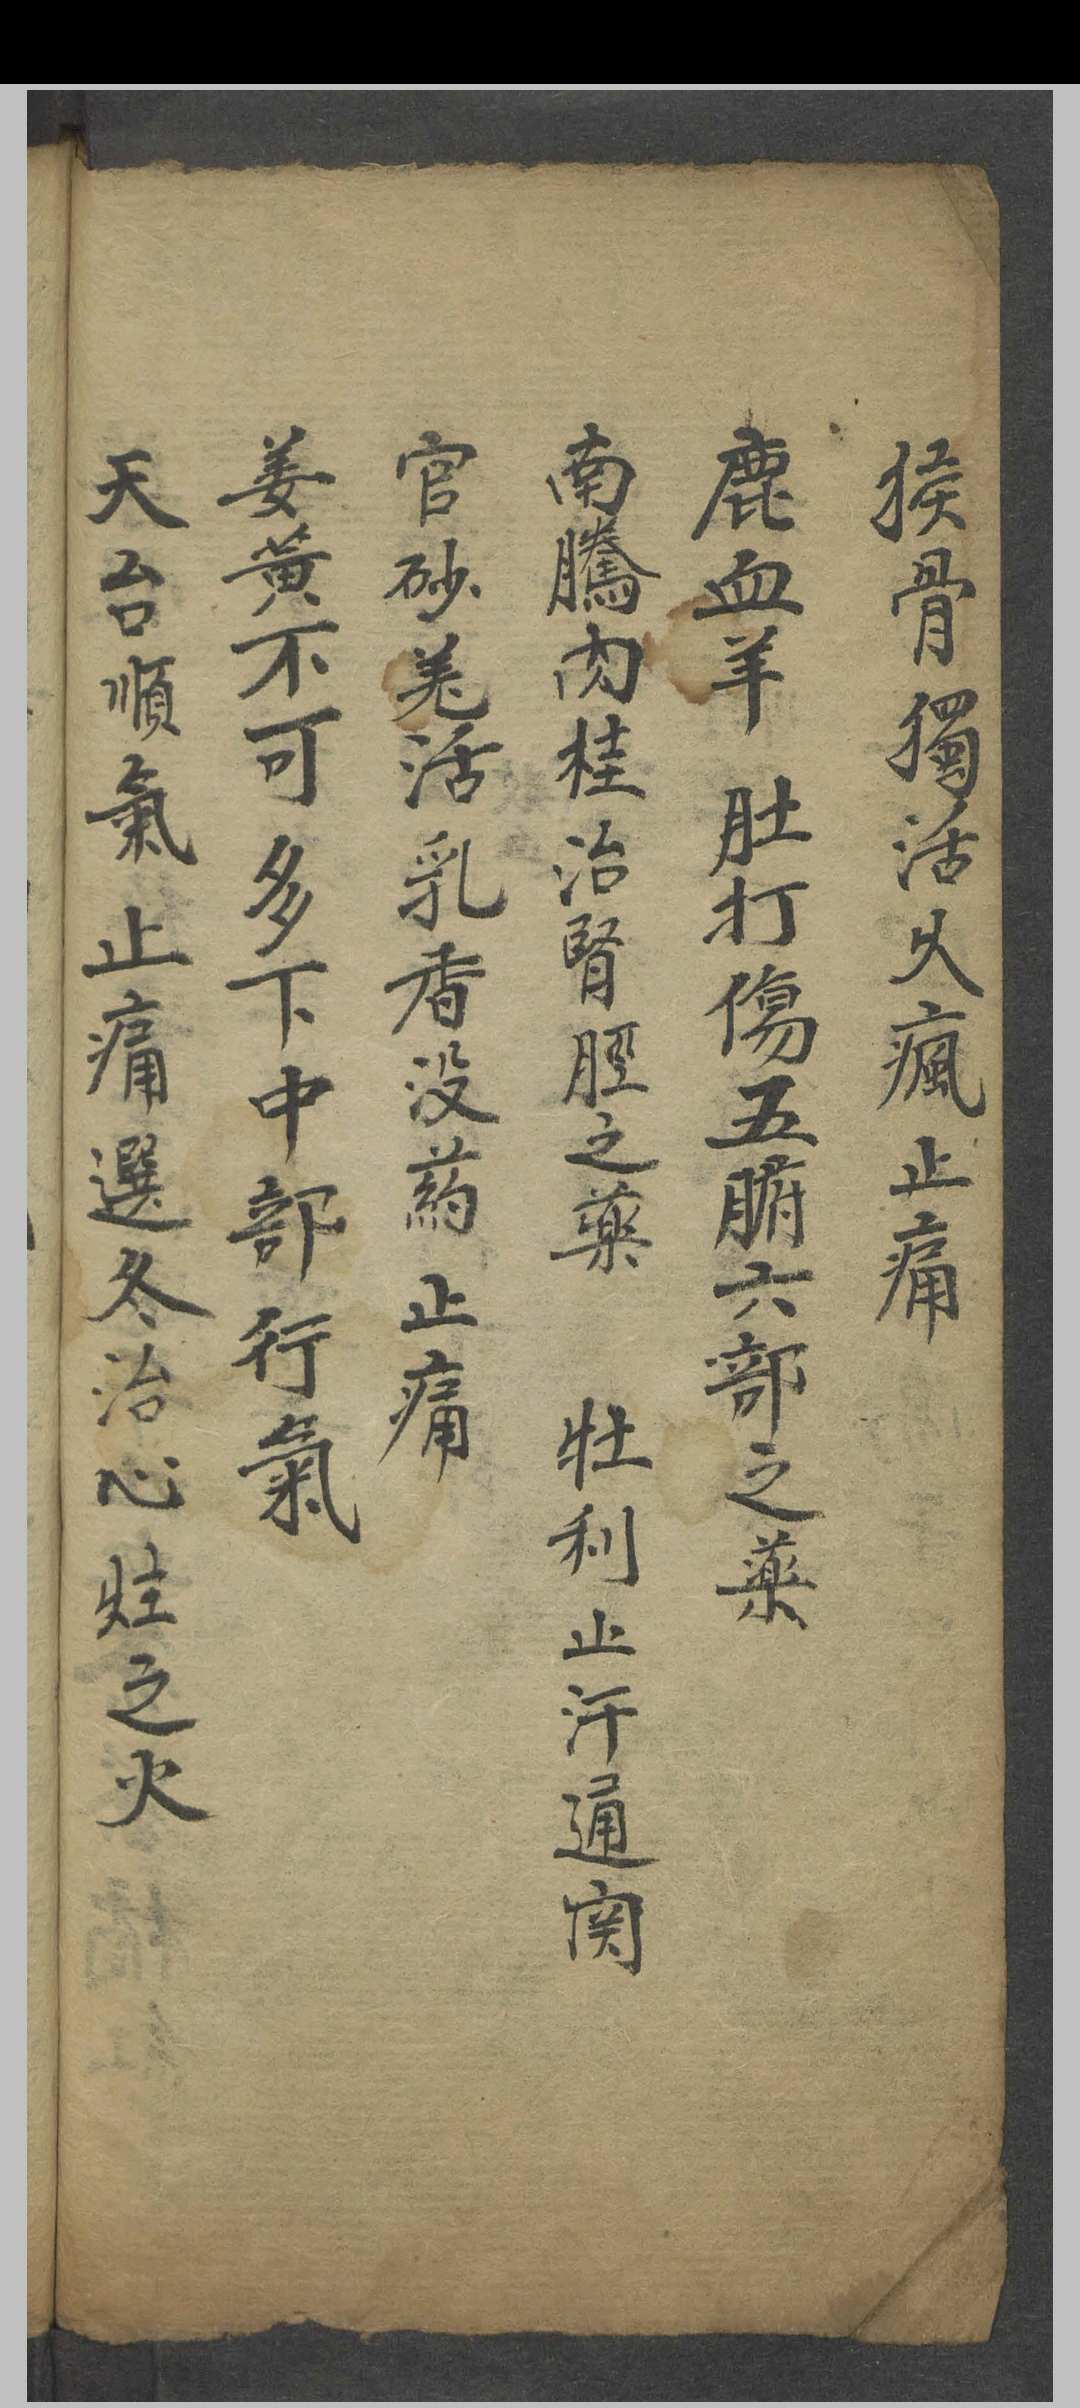 猴骨獨活火瘋止痛
鹿血羊 肚打傷五腑六部之藥
南騰肉桂治腎脛之藥 牡利止汗通関
官砂羌活乳香没葯 止痛
姜黃不可多下中部行氣
天台順氣止痛選冬治心肚之火